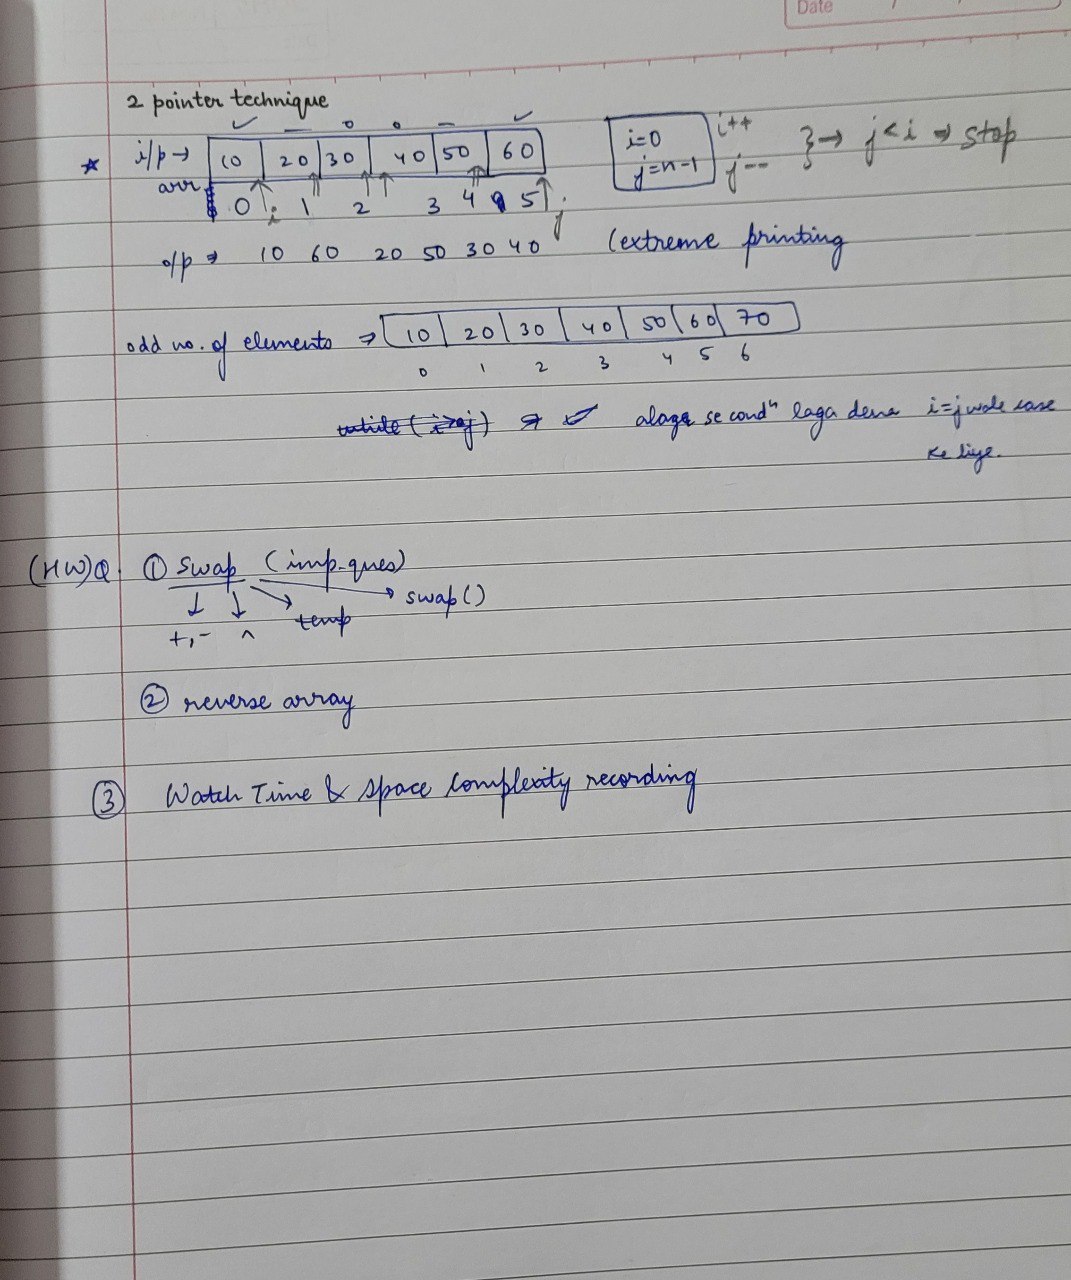 Date
2 pointer technique
i/p → 10 20 30 40 50 60
arr
0 i 1 2 3 4 5 j
i=0 i++
j=n-1 j-- } → j < i ⇒ stop
o/p ⇒ 10 60 20 50 30 40 (extreme printing
odd no. of elements ⇒ 10 20 30 40 50 60 70
0 1 2 3 4 5 6
alaga se condⁿ laga dena i=j wale case
ke liye.
(HW)Q. ① Swap (imp. ques)
+,- ^ temp swap()
② reverse array
③ Watch Time & Space Complexity recording